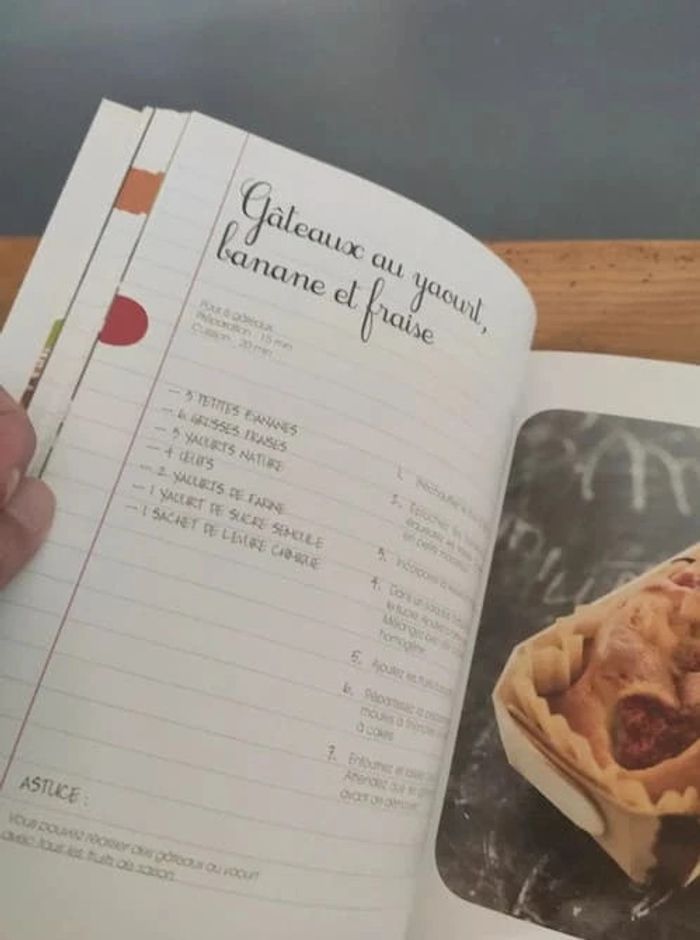 Gâteaux au yaourt,
banane et fraise
Pour 6 gâteaux
Préparation : 15 min
Cuisson : 20 min
– 3 PETITES BANANES
– 6 GROSSES FRAISES
– 3 YAOURTS NATURE
– 4 ŒUFS
– 2 YAOURTS DE FARINE
– 1 YAOURT DE SUCRE SEMOULE
– 1 SACHET DE LEVURE CHIMIQUE
1. Préchauffez le
2. Épluchez les
en petits morceaux
3. Incorporez la
4. Dans un saladier
le sucre. Ajoutez
Mélangez
homogène.
5. Ajoutez les fruits
6. Répartissez la
moules à
à cakes.
7. Enfournez et laissez
Attendez que
avant de démouler.
ASTUCE :
Vous pouvez réaliser des gâteaux au yaourt
avec tous les fruits de saison.